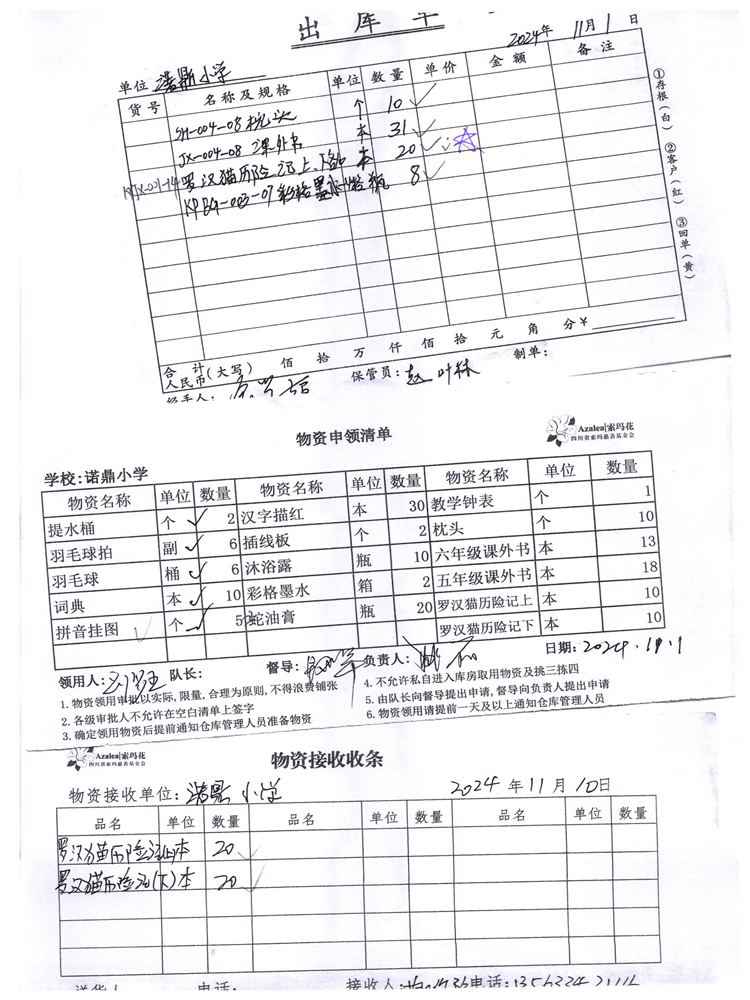 出库单
2024年11月1日
单位 诺鼎小学
货号 名称及规格 单位 数量 单价 金额 备注
SH-004-08 枕头 个 10
JX-004-08 课外书 本 31
罗汉猫历险记上、下各 本 20
彩格墨水 瓶 8
合计人民币(大写) 佰 拾 万 仟 佰 拾 元 角 分 ¥
经手人: 保管员: 制单:
①存根(白) ②客户(红) ③回单(黄)
Azalea|索玛花
四川省索玛慈善基金会
物资申领清单
学校:诺鼎小学
物资名称 单位 数量 物资名称 单位 数量 物资名称 单位 数量
提水桶 个 2 汉字描红 本 30 教学钟表 个 1
羽毛球拍 副 6 插线板 个 2 枕头 个 10
羽毛球 桶 6 沐浴露 瓶 10 六年级课外书 本 13
词典 本 10 彩格墨水 箱 2 五年级课外书 本 18
拼音挂图 个 5 蛇油膏 瓶 20 罗汉猫历险记上 本 10
罗汉猫历险记下 本 10
领用人: 队长: 督导: 负责人: 日期:
1. 物资领用审批以实际,限量,合理为原则,不得浪费铺张
2. 各级审批人不允许在空白清单上签字
3. 确定领用物资后提前通知仓库管理人员准备物资
4. 不允许私自进入库房取用物资及挑三拣四
5. 由队长向督导提出申请,督导向负责人提出申请
6. 物资领用请提前一天及以上通知仓库管理人员
Azalea|索玛花
四川省索玛慈善基金会
物资接收收条
物资接收单位: 诺鼎小学 2024年11月10日
品名 单位 数量 品名 单位 数量 品名 单位 数量
罗汉猫历险记(上) 本 20
罗汉猫历险记(下) 本 20
送货人 电话: 接收人: 电话: